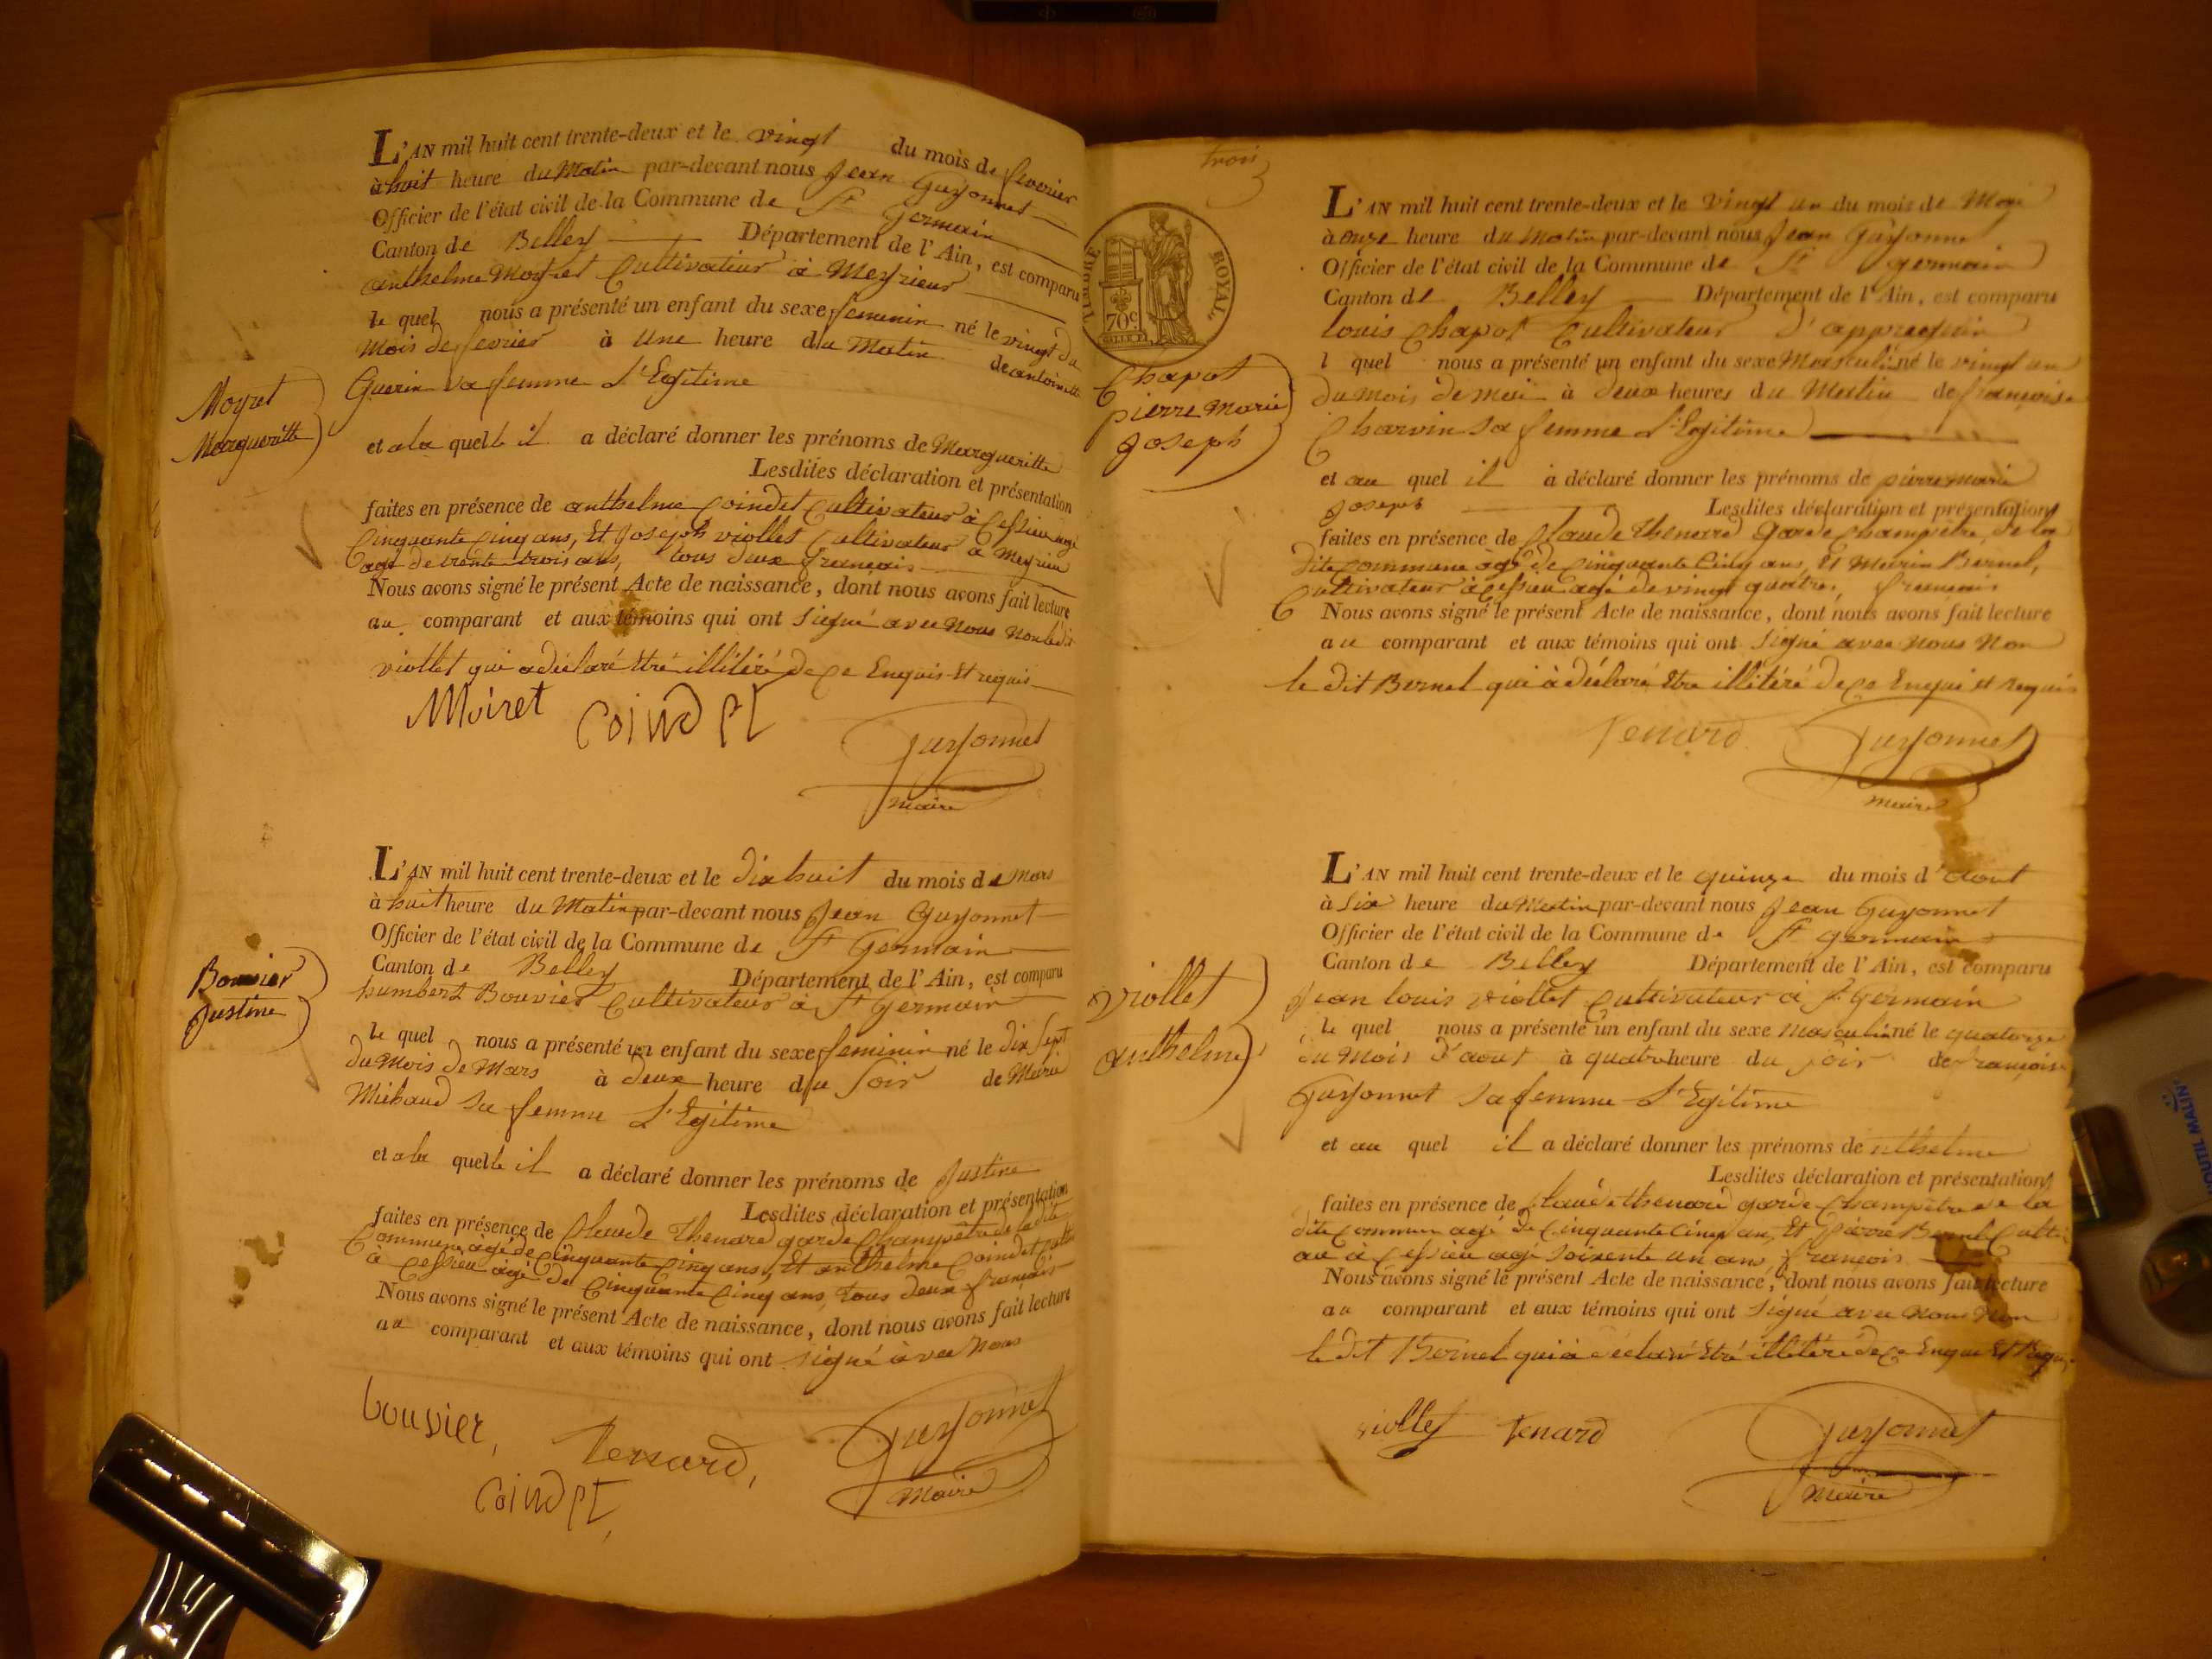 L'AN mil huit cent trente-deux et le vingt du mois de fevrier
à huit heure du Matin par-devant nous Jean Guyonnet
Officier de l'état civil de la Commune de St Germain
Canton de Belley Département de l'Ain, est comparu
anthelme Moyret Cultivateur à Meyrieux
le quel nous a présenté un enfant du sexe feminin né le vingt du
Mois de fevrier à Une heure du Matin de antoinette
Guerin sa femme L'Egitime
Moyret
Margueritte
et a la quelle il a déclaré donner les prénoms de Margueritte
Lesdites déclaration et présentation
faites en présence de anthelme Coindet Cultivateur à Cessieu agé
Cinquante Cinq ans, Et Joseph viollet Cultivateur a Meyrieu
agé de trente trois ans, tous deux français
Nous avons signé le présent Acte de naissance, dont nous avons fait lecture
au comparant et aux témoins qui ont signé avec Nous Non le dit
viollet qui a déclaré Etré illitéré de ce Enquis Et requis
Moiret Coindet Guyonnet
maire
L'AN mil huit cent trente-deux et le dix huit du mois de Mars
à huit heure du Matin par-devant nous Jean Guyonnet
Officier de l'état civil de la Commune de St Germain
Canton de Belley Département de l'Ain, est comparu
humbert Bouvier Cultivateur à St Germain
Bouvier
Justine
le quel nous a présenté un enfant du sexe feminin né le dix sept
du Mois de Mars à deux heure du Soir de Marie
Michaud sa femme L'Egitime
et a la quelle il a déclaré donner les prénoms de Justine
Lesdites déclaration et présentation
faites en présence de Claude Thenard garde Champêtre de la dite
Commune agé de Cinquante Cinq ans, Et anthelme Coindet
à Cessieu agé de Cinquante Cinq ans, tous deux français
Nous avons signé le présent Acte de naissance, dont nous avons fait lecture
au comparant et aux témoins qui ont signé avec Nous
bouvier, Tenard, Guyonnet
Coindet, Maire
trois
3
TIMBRE ROYAL
70c
L'AN mil huit cent trente-deux et le vingt un du mois de May
à onze heure du Matin par-devant nous Jean Guyonne
Officier de l'état civil de la Commune de St germain
Canton de Belley Département de l'Ain, est comparu
louis Chapot Cultivateur
l quel nous a présenté un enfant du sexe Masculin né le vingt un
du mois de mai à deux heures du Matin de françoise
Charvin sa femme L'Egitime
Chapot
pierre Marie
Joseph
et au quel il a déclaré donner les prénoms de pierre marie
Joseph Lesdites déclaration et présentation
faites en présence de Claude Thenard Garde Champêtre de la
dite Commune agé de Cinquante Cinq ans, Et Marin Bernel,
Cultivateur à Cessieu agé de vingt quatre, francais
Nous avons signé le présent Acte de naissance, dont nous avons fait lecture
au comparant et aux témoins qui ont signé avec Nous Non
le dit Bernel qui à déclaré Etre illitéré de ce Enqui et requis
Tenard Guyonnet
maire
L'AN mil huit cent trente-deux et le quinze du mois d'aout
à Six heure du Matin par-devant nous Jean Guyonnet
Officier de l'état civil de la Commune de St germain
Canton de Belley Département de l'Ain, est comparu
Jean louis viollet Cultivateur à St Germain
viollet
anthelme
le quel nous a présenté un enfant du sexe Masculin né le quatorze
du Mois d'aout à quatre heure du soir de françoise
Guyonnet sa femme L'Egitime
et au quel il a déclaré donner les prénoms de nthelme
Lesdites déclaration et présentation
faites en présence de Claude thenard garde Champêtre de la
dite Commun agé de Cinquante Cinq an, Et pierre Bernel
à Cessieu agé soixente un ans, françois
Nous avons signé le présent Acte de naissance, dont nous avons fait lecture
au comparant et aux témoins qui ont signé avec Nous Non
le dit Bernel qui à déclaré Etré illitéré de ce Enquis Et Requis
viollet Tenard Guyonnet
maire
OUTIL MALIN